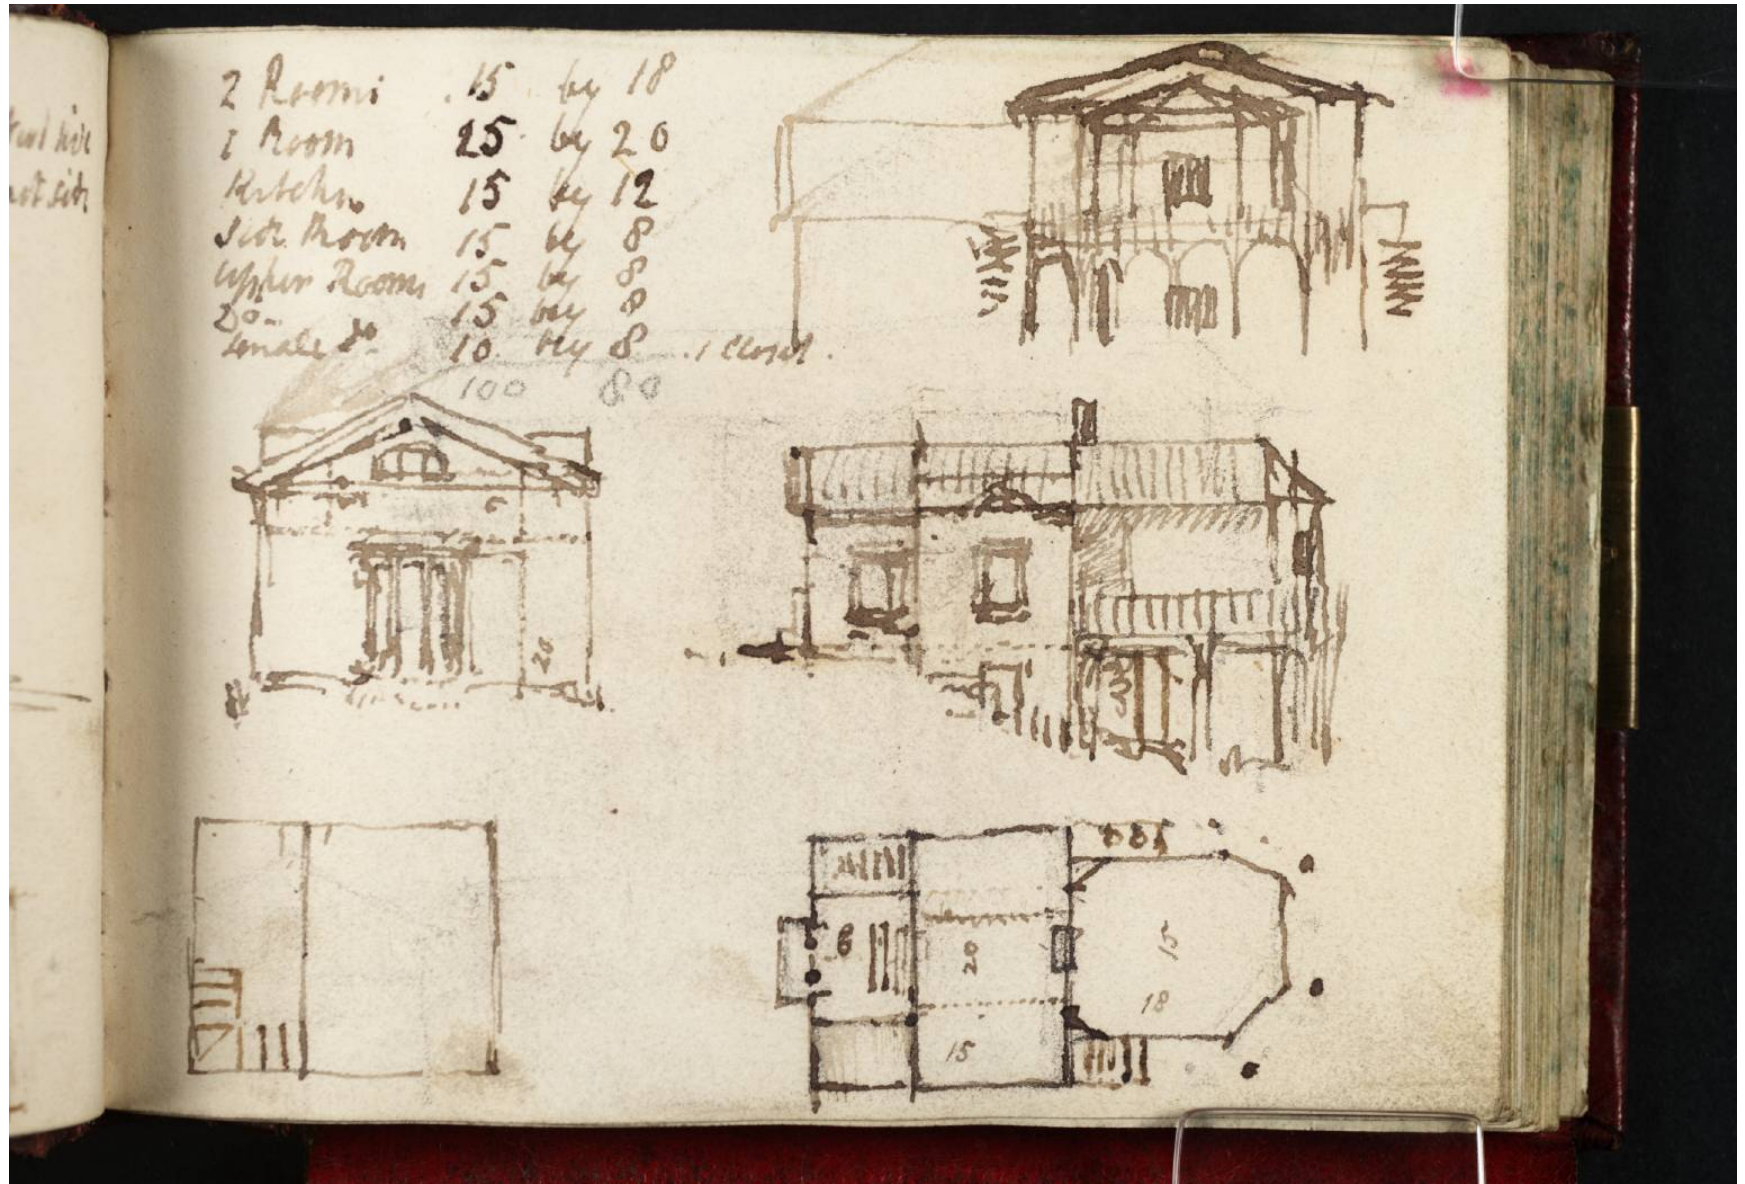 2 Rooms 15 by 18
1 Room 25 by 20
Kitchn 15 by 12
Side Room 15 by 8
Upper Rooms 15 by 8
Do 15 by 8
Do 10 by 8 . 1 Closet .
100 80
20
6
20
15
15
18